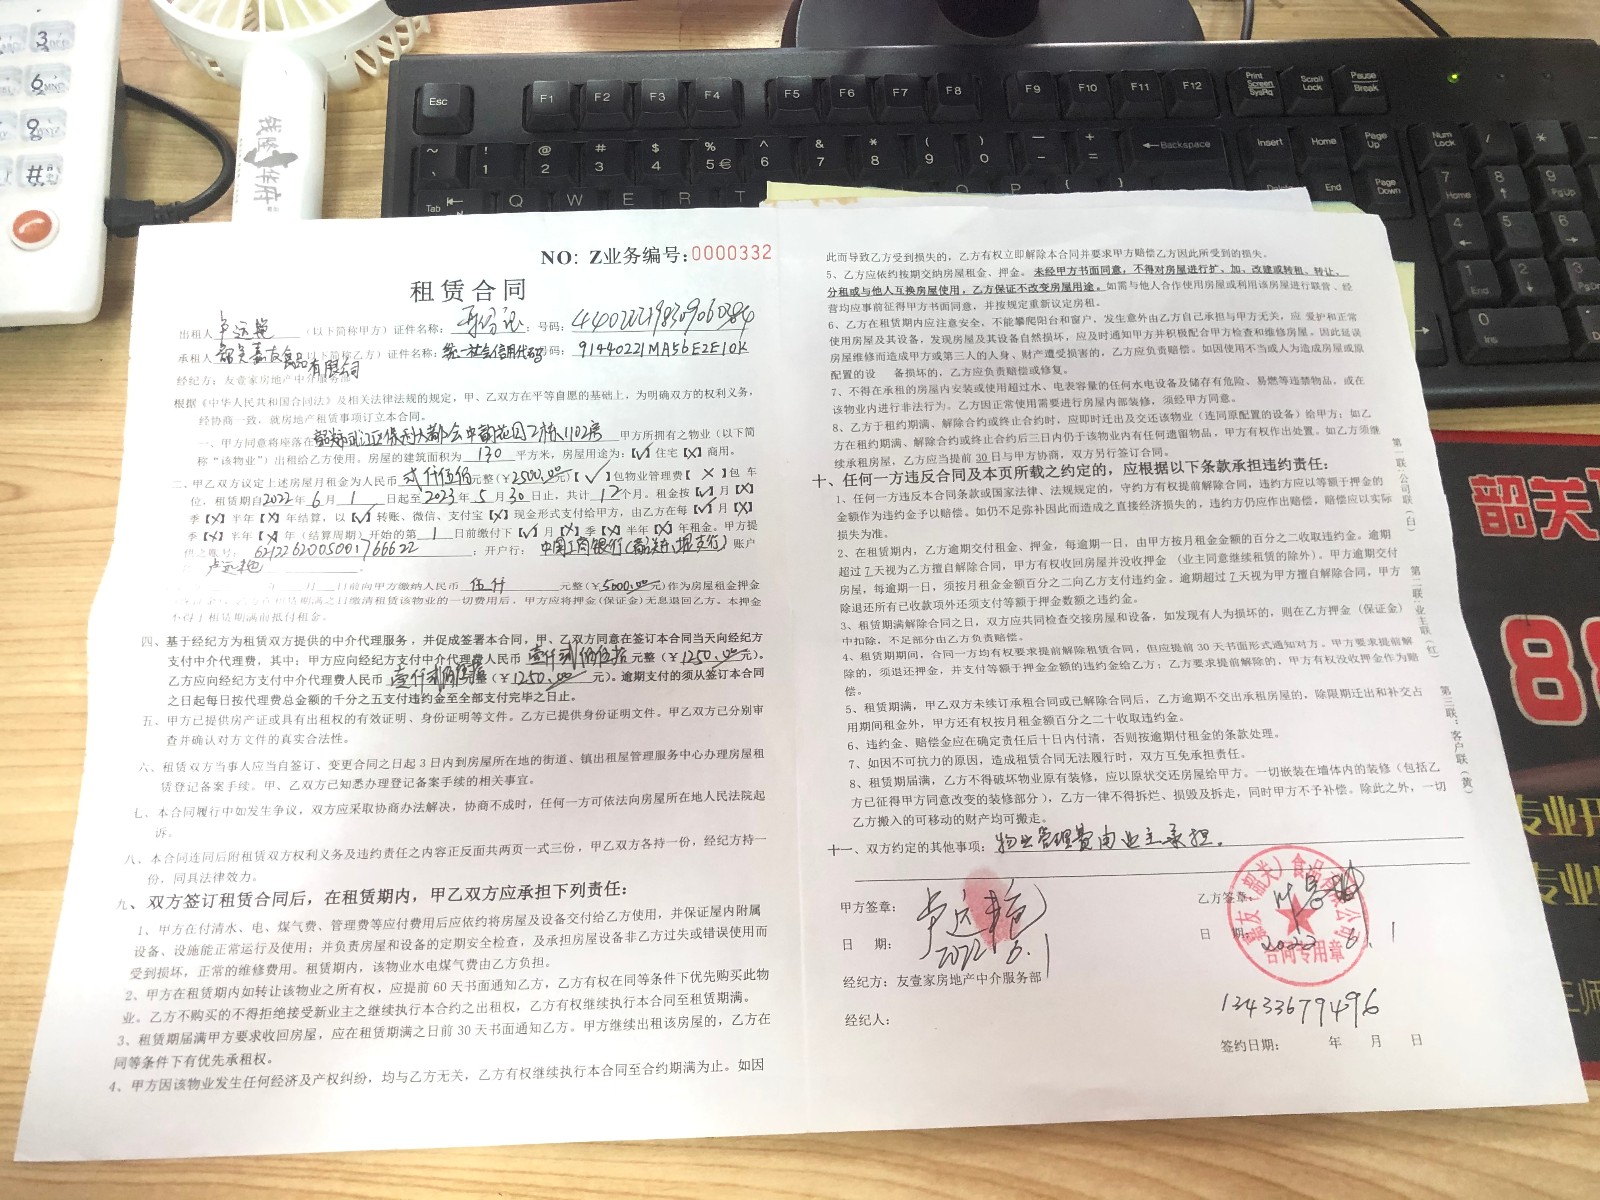 NO: Z业务编号:0000332
租赁合同
出租人 卢运艳 (以下简称甲方) 证件名称: 身份证 号码: 440222198309060384
承租人 韶关嘉友食品有限公司 (以下简称乙方) 证件名称: 统一社会信用代码 号码: 91440221MA56E2E10K
经纪方: 友壹家房地产中介服务部
根据《中华人民共和国合同法》及相关法律法规的规定, 甲、乙双方在平等自愿的基础上, 为明确双方的权利义务,
经协商一致, 就房地产租赁事项订立本合同。
一、甲方同意将座落在 韶关市武江区保利大都会中 花园 栋1102房 甲方所拥有之物业 (以下简
称“该物业”) 出租给乙方使用, 房屋的建筑面积为 130 平方米, 房屋用途为: 【√】住宅【X】商用。
二、甲乙双方议定上述房屋月租金为人民币 贰仟伍佰 元整 (¥2500.00元)【√】包物业管理费【X】包 车
位, 租赁期自2022年 6 月 1 日起至 2023年 5 月 30 日止, 共计 12 个月。租金按【√】月【X】
季【X】半年【X】年结算, 以【√】转账、微信、支付宝【X】现金形式支付给甲方, 由乙方在每【√】月【X】
季【X】半年【X】年 (结算周期) 开始的第 1 日前缴付下【√】月【X】季【X】半年【X】年租金。甲方提
供之账号: 6212262005001766622 ; 开户行: 中国工商银行(韶关 堤支行) 账户
卢运艳
年 月 日前向甲方缴纳人民币 伍仟 元整 (¥5000.00元) 作为房屋租赁押金
租赁期满之日缴清租赁该物业的一切费用后, 甲方应将押金 (保证金) 无息退回乙方。本押金
不得于租赁期满前抵付租金。
四、基于经纪方为租赁双方提供的中介代理服务, 并促成签署本合同, 甲、乙双方同意在签订本合同当天向经纪方
支付中介代理费, 其中: 甲方应向经纪方支付中介代理费人民币 壹仟贰佰伍拾 元整 (¥1250.00元)。
乙方应向经纪方支付中介代理费人民币 壹仟贰佰伍拾 整 (¥1250.00 元)。逾期支付的须从签订本合同
之日起每日按代理费总金额的千分之五支付违约金至全部支付完毕之日止。
五、甲方已提供房产证或具有出租权的有效证明、身份证明等文件。乙方已提供身份证明文件。甲乙双方已分别审
查并确认对方文件的真实合法性。
六、租赁双方当事人应当自签订、变更合同之日起 3 日内到房屋所在地的街道、镇出租屋管理服务中心办理房屋租
赁登记备案手续。甲、乙双方已知悉办理登记备案手续的相关事宜。
七、本合同履行中如发生争议, 双方应采取协商办法解决, 协商不成时, 任何一方可依法向房屋所在地人民法院起
诉。
八、本合同连同后附租赁双方权利义务及违约责任之内容正反面共两页一式三份, 甲乙双方各持一份, 经纪方持一
份, 同具法律效力。
九、双方签订租赁合同后, 在租赁期内, 甲乙双方应承担下列责任:
1、甲方在付清水、电、煤气费、管理费等应付费用后应依约将房屋及设备交付给乙方使用, 并保证屋内附属
设备、设施能正常运行及使用; 并负责房屋和设备的定期安全检查, 及承担房屋设备非乙方过失或错误使用而
受到损坏, 正常的维修费用。租赁期内, 该物业水电煤气费由乙方负担。
2、甲方在租赁期内如转让该物业之所有权, 应提前 60 天书面通知乙方, 乙方有权在同等条件下优先购买此物
业。乙方不购买的不得拒绝接受新业主之继续执行本合约之出租权, 乙方有权继续执行本合同至租赁期满。
3、租赁期届满甲方要求收回房屋, 应在租赁期满之日前 30 天书面通知乙方。甲方继续出租该房屋的, 乙方在
同等条件下有优先承租权。
4、甲方因该物业发生任何经济及产权纠纷, 均与乙方无关, 乙方有权继续执行本合同至合约期满为止。如因
此而导致乙方受到损失的, 乙方有权立即解除本合同并要求甲方赔偿乙方因此所受到的损失。
5、乙方应依约按期交纳房屋租金、押金。未经甲方书面同意, 不得对房屋进行扩、加、改建或转租、转让、
分租或与他人互换房屋使用, 乙方保证不改变房屋用途。如需与他人合作使用房屋或利用该房屋进行联营、经
营均应事前征得甲方书面同意, 并按规定重新议定房租。
6、乙方在租赁期内应注意安全, 不能攀爬阳台和窗户, 发生意外由乙方自己承担与甲方无关, 应 爱护和正常
使用房屋及其设备, 发现房屋及其设备自然损坏, 应及时通知甲方并积极配合甲方检查和维修房屋。因此延误
房屋维修而造成甲方或第三人的人身、财产遭受损害的, 乙方应负责赔偿。如因使用不当或人为造成房屋或原
配置的设 备损坏的, 乙方应负责赔偿或修复。
7、不得在承租的房屋内安装或使用超过水、电表容量的任何水电设备及储存有危险、易燃等违禁物品, 或在
该物业内进行非法行为。乙方因正常使用需要进行房屋内部装修, 须经甲方同意。
8、乙方于租约期满、解除合约或终止合约时, 应即时迁出及交还该物业 (连同原配置的设备) 给甲方; 如乙
方在租约期满、解除合约或终止合约后三日内仍于该物业内有任何遗留物品, 甲方有权作出处置。如乙方须继
续承租房屋, 乙方应当提前 30 日与甲方协商, 双方另行签订合同。
十、任何一方违反合同及本页所载之约定的, 应根据以下条款承担违约责任:
1、任何一方违反本合同条款或国家法律、法规规定的, 守约方有权提前解除合同, 违约方应以等额于押金的
金额作为违约金予以赔偿。如仍不足弥补因此而造成之直接经济损失的, 违约方仍应作出赔偿, 赔偿应以实际
损失为准。
2、在租赁期内, 乙方逾期交付租金、押金, 每逾期一日, 由甲方按月租金金额的百分之二收取违约金。逾期
超过 7 天视为乙方擅自解除合同, 甲方有权收回房屋并没收押金 (业主同意继续租赁的除外)。甲方逾期交付
房屋, 每逾期一日, 须按月租金金额百分之二向乙方支付违约金。逾期超过 7 天视为甲方擅自解除合同, 甲方
除退还所有已收款项外还须支付等额于押金数额之违约金。
3、租赁期满解除合同之日, 双方应共同检查交接房屋和设备, 如发现有人为损坏的, 则在乙方押金 (保证金)
中扣除, 不足部分由乙方负责赔偿。
4、租赁期期间, 合同一方均有权要求提前解除租赁合同, 但应提前 30 天书面形式通知对方。甲方要求提前解
除的, 须退还押金, 并支付等额于押金金额的违约金给乙方; 乙方要求提前解除的, 甲方有权没收押金作为赔
偿。
5、租赁期满, 甲乙双方未续订承租合同或已解除合同后, 乙方逾期不交出承租房屋的, 除限期迁出和补交占
用期间租金外, 甲方还有权按月租金额百分之二十收取违约金。
6、违约金、赔偿金应在确定责任后十日内付清, 否则按逾期付租金的条款处理。
7、如因不可抗力的原因, 造成租赁合同无法履行时, 双方互免承担责任。
8、租赁期届满, 乙方不得破坏物业原有装修, 应以原状交还房屋给甲方。一切嵌装在墙体内的装修 (包括乙
方已征得甲方同意改变的装修部分), 乙方一律不得拆烂、损毁及拆走, 同时甲方不予补偿。除此之外, 一切
乙方搬入的可移动的财产均可搬走。
十一、双方约定的其他事项: 物业管理费由业主承担。
甲方签章: 卢运艳
日 期: 2022 6.1
经纪方: 友壹家房地产中介服务部
经纪人:
乙方签章:
日 期: 2022 6.1
嘉友(韶关)食品有限公司
合同专用章
12433679496
签约日期: 年 月 日
第一联:公司联(白)
第二联:业主联(红)
第三联:客户联(黄)
线隆 华府
3
6
9
#
Esc F1 F2 F3 F4 F5 F6 F7 F8 F9 F10 F11 F12
Print Screen SysRq
Scroll Lock
Pause Break
~ ! 1 @ 2 # 3 $ 4 % 5 € ^ 6 & 7 * 8 ( 9 ) 0 — - + = ←Backspace
Insert Home Page Up Num Lock / * -
Tab Q W E R T O P { }
End Page Down 7 Home 8 9 PgUp
4 5 6
1 End 2 3
0 Ins
韶关
88
专业
专业
师